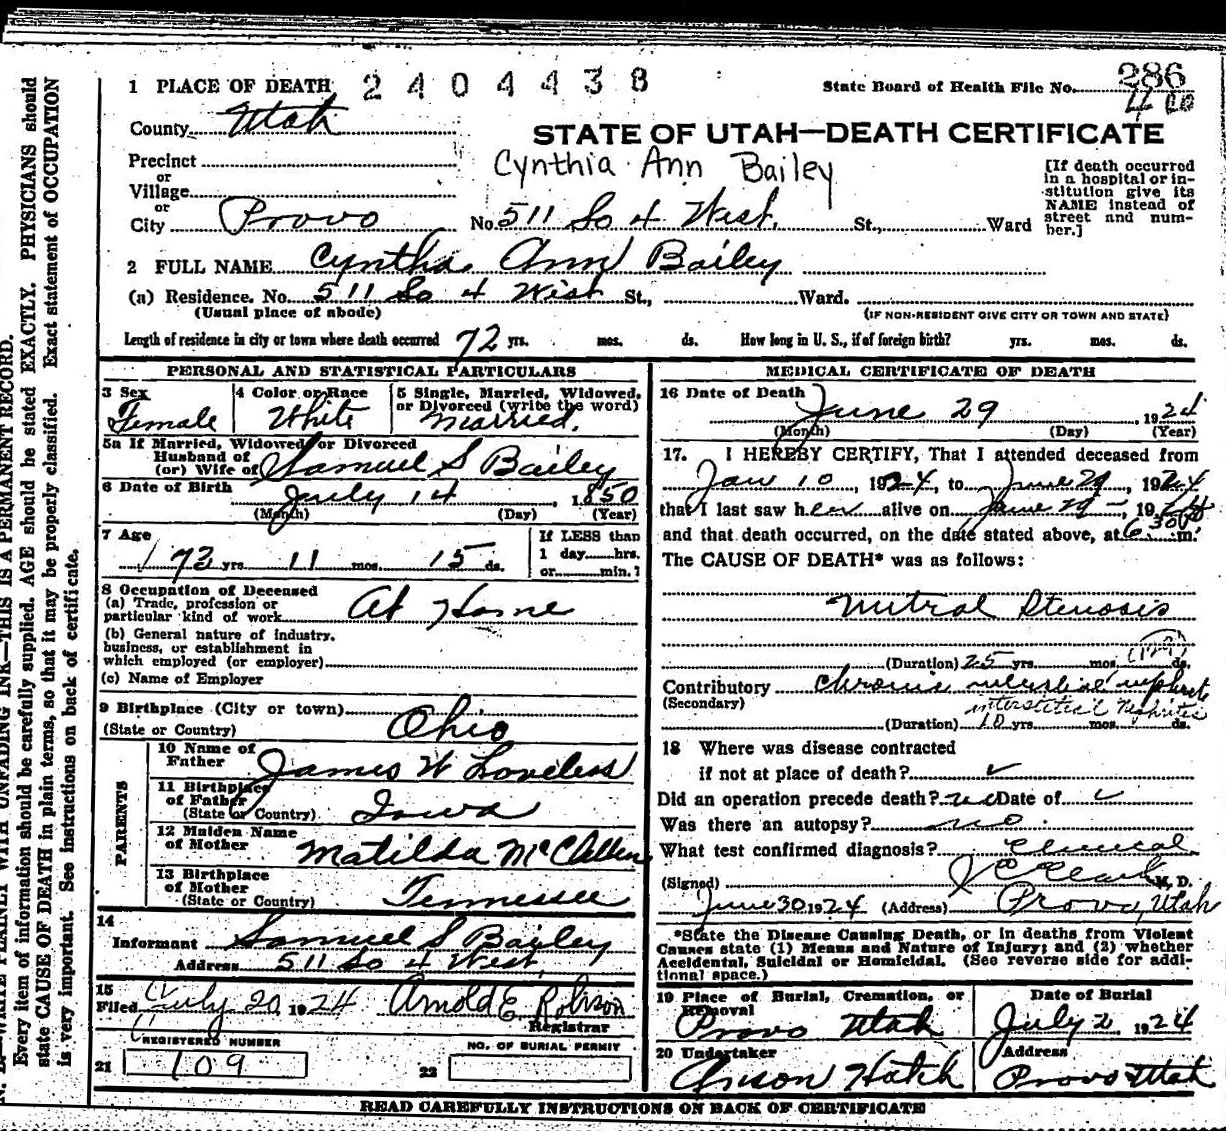 1 PLACE OF DEATH 2404438 State Board of Health File No. 286
County Utah
STATE OF UTAH—DEATH CERTIFICATE
Cynthia Ann Bailey
Precinct
or
Village
or
City Provo No. 511 So 4 West. St., Ward
[If death occurred
in a hospital or in-
stitution give its
NAME instead of
street and num-
ber.]
2 FULL NAME Cyntha Ann Bailey
(a) Residence. No. 511 So 4 West St., Ward.
(Usual place of abode) (IF NON-RESIDENT GIVE CITY OR TOWN AND STATE)
Length of residence in city or town where death occurred 72 yrs. mos. ds. How long in U. S., if of foreign birth? yrs. mos. ds.
PERSONAL AND STATISTICAL PARTICULARS
3 Sex 4 Color or Race 5 Single, Married, Widowed,
or Divorced (write the word)
Female White Married.
5a If Married, Widowed or Divorced
Husband of
(or) Wife of Samuel S Bailey
6 Date of Birth July 14 1850
(Month) (Day) (Year)
7 Age
73 yrs 11 mos. 15 ds.
If LESS than
1 day hrs.
or min.?
8 Occupation of Deceased
(a) Trade, profession or
particular kind of work At Home
(b) General nature of industry,
business, or establishment in
which employed (or employer)
(c) Name of Employer
9 Birthplace (City or town)
(State or Country) Ohio
PARENTS
10 Name of
Father James W Loveless
11 Birthplace
of Father
(State or Country) Iowa
12 Maiden Name
of Mother Matilda
13 Birthplace
of Mother
(State or Country) Tennessee
14
Informant Samuel S Bailey
Address 511 So 4 West
15
Filed July 20 1924 Arnold E.
Registrar
REGISTERED NUMBER NO. OF BURIAL PERMIT
21 109 22
MEDICAL CERTIFICATE OF DEATH
16 Date of Death
June 29 1924
(Month) (Day) (Year)
17. I HEREBY CERTIFY, That I attended deceased from
Jan 10, 1924, to June 29, 1924
that I last saw her alive on June 29 19
and that death occurred, on the date stated above, at 6 30 m.
The CAUSE OF DEATH* was as follows:
Mitral Stenosis
(Duration) 25 yrs. mos. ds.
Contributory Chronic
(Secondary) interstitial Nephritis
(Duration) 10 yrs. mos. ds.
18 Where was disease contracted
if not at place of death?
Did an operation precede death? no Date of
Was there an autopsy? no
What test confirmed diagnosis? Clinical
(Signed) M. D.
June 30 1924 (Address) Provo, Utah
*State the Disease Causing Death, or in deaths from Violent
Causes state (1) Means and Nature of Injury; and (2) whether
Accidental, Suicidal or Homicidal. (See reverse side for addi-
tional space.)
19 Place of Burial, Cremation, or
Removal
Provo Utah
Date of Burial
July 2 1924
20 Undertaker
Anson Hatch
Address
Provo Utah
READ CAREFULLY INSTRUCTIONS ON BACK OF CERTIFICATE
WRITE PLAINLY WITH UNFADING INK—THIS IS A PERMANENT RECORD.
Every item of information should be carefully supplied. AGE should be stated EXACTLY. PHYSICIANS should
state CAUSE OF DEATH in plain terms, so that it may be properly classified. Exact statement of OCCUPATION
is very important. See instructions on back of certificate.